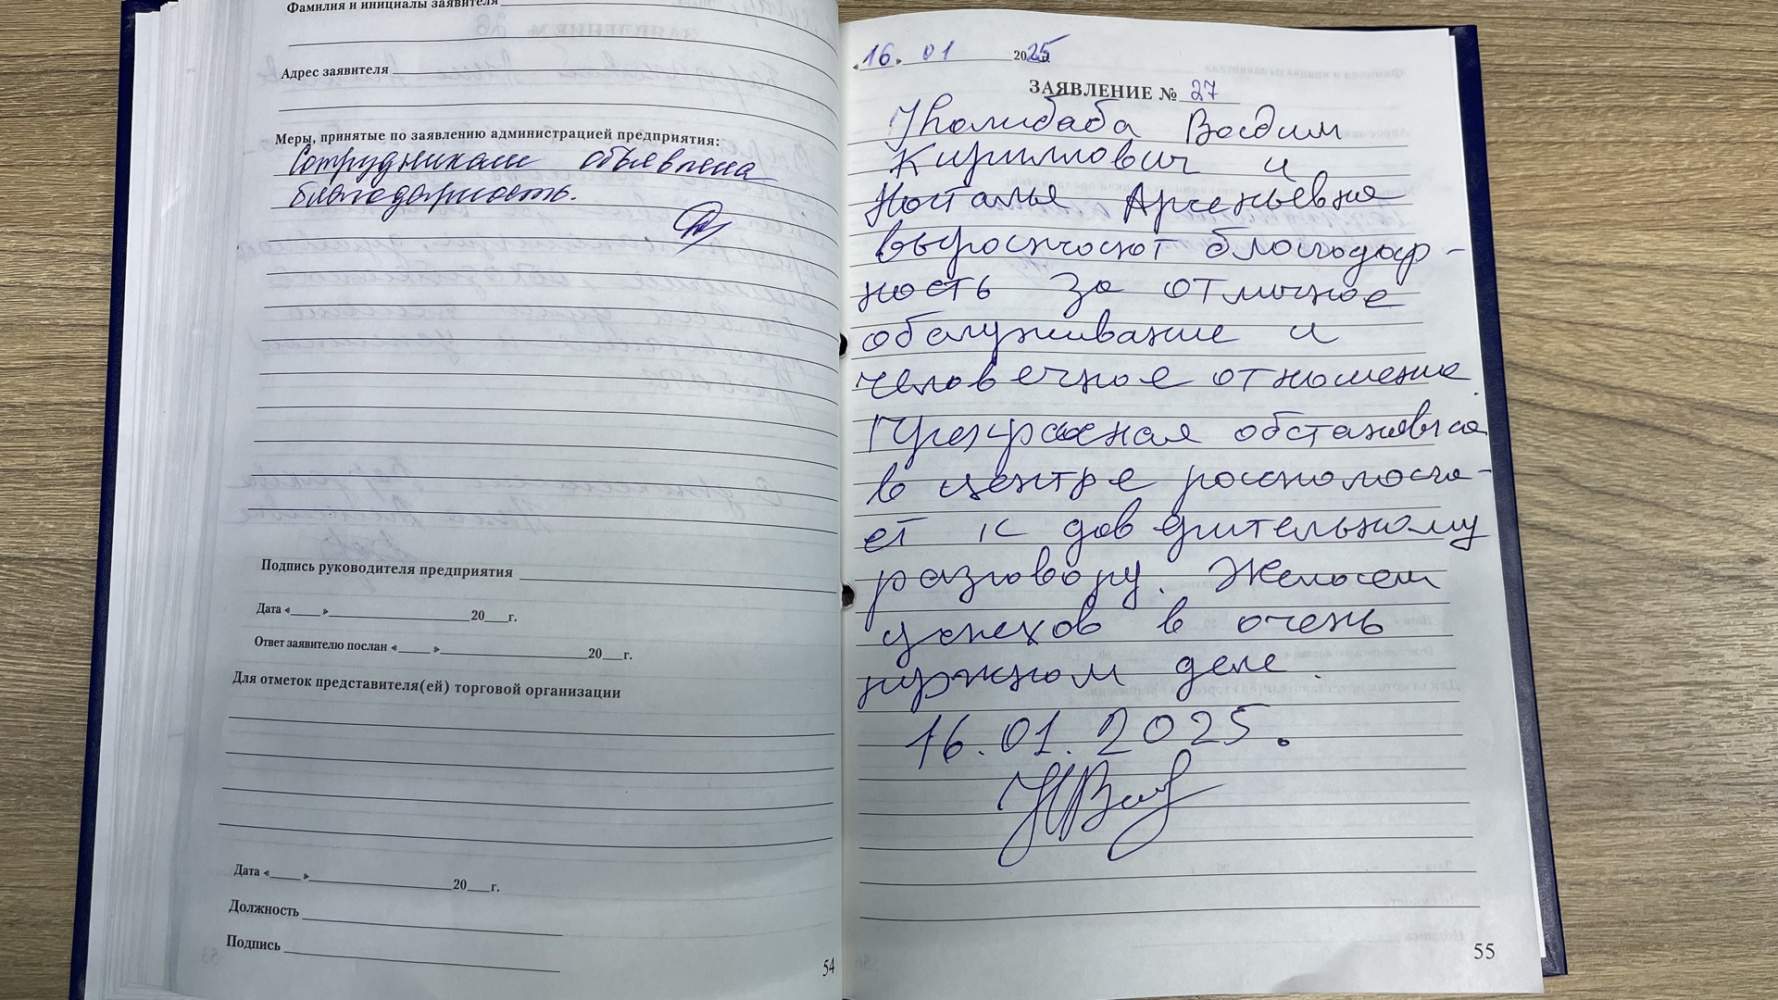 Фамилия и инициалы заявителя
Адрес заявителя
Меры, принятые по заявлению администрацией предприятия:
Сотрудникам объявлена
благодарность.
Подпись руководителя предприятия
Дата «___» 20___г.
Ответ заявителю послан «___» 20___г.
Для отметок представителя(ей) торговой организации
Дата «___» 20___г.
Должность
Подпись
54
«16» 01 2025
ЗАЯВЛЕНИЕ № 27
Вадим
Кириллович и
Наталья Арсеньевна
выражают благодар-
ность за отличное
обслуживание и
человечное отношение.
Прекрасная обстановка
в центре располага-
ет к доверительному
разговору. Желаем
успехов в очень
нужном деле.
16.01.2025.
55